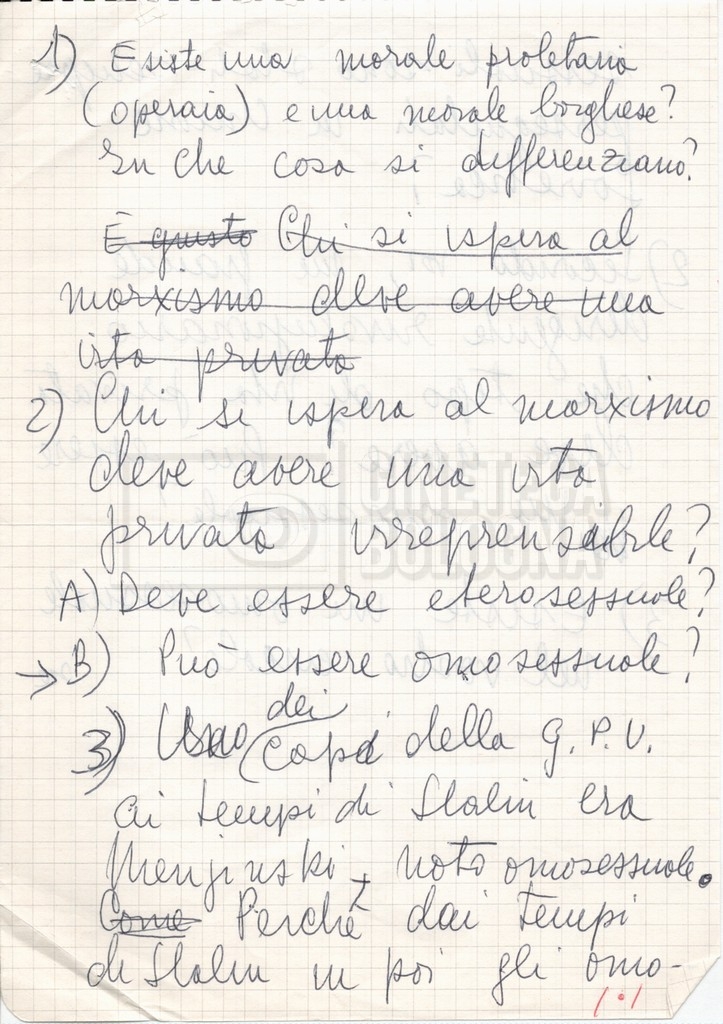 1) Esiste una morale proletaria
(operaia) e una morale borghese?
In che cosa si differenziano?
È giusto Chi si ispira al
marxismo deve avere una
vita privata
2) Chi si ispira al marxismo
deve avere una vita
privata irreprensibile?
A) Deve essere eterosessuale?
→ B) Può essere omosessuale?
3) Uno dei capi della G.P.U.
ai tempi di Stalin era
Menjinski, noto omosessuale.
Come Perché dai tempi
di Stalin in poi gli omo-
1.1
CINETECA
BOLOGNA